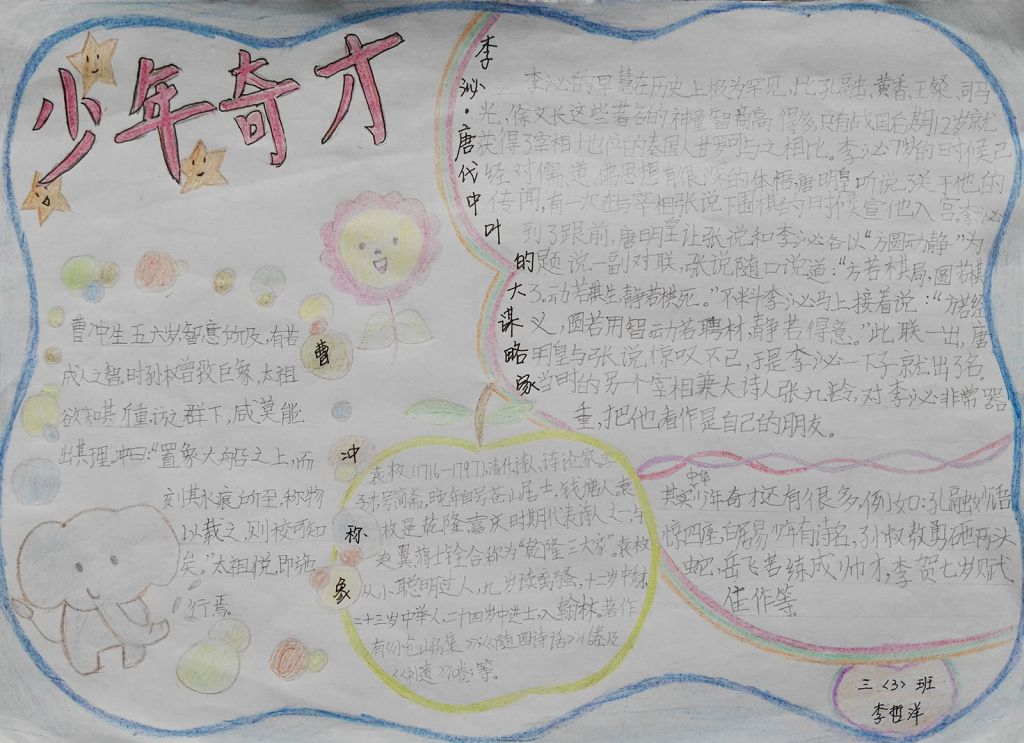 少年奇才
李泌·唐代中叶的大谋略家
李泌的早慧在历史上极为罕见,比孔融、黄香、王粲、司马
光、徐文长这些著名的神童智商高得多,只有战国后期12岁就
获得了宰相地位的秦国人甘罗可与之相比。李泌7岁的时候已
经对儒、道、佛思想有很深的体悟,唐明皇听说了关于他的
传闻,有一次在与宰相张说下围棋的时候宣他入宫。李泌
到了跟前,唐明皇让张说和李泌各以“方圆动静”为
题说一副对联,张说随口说道:“方若棋局,圆若棋
子。动若棋生,静若棋死。”不料李泌马上接着说:“方若经
义,圆若用智,动若聘材,静若得意。”此联一出,唐
明皇与张说,惊叹不已,于是李泌一下子就出了名。
当时的另一个宰相兼大诗人张九龄,对李泌非常器
重,把他看作是自己的朋友。
曹冲称象
曹冲生五六岁,智意所及,有若
成人之智。时孙权曾致巨象,太祖
欲知其重,访之群下,咸莫能
出其理。冲曰:“置象大船之上,而
刻其水痕所至,称物
以载之,则校可知
矣。”太祖悦,即施
行焉。
袁枚(1716-1797),清代诗人、诗论家。字
子才,号简斋,晚年自号苍山居士,钱塘人。袁
枚是乾隆、嘉庆时期代表诗人之一,与
赵翼、蒋士铨合称为“乾隆三大家”。袁枚
从小聪明过人,九岁读离骚,十二岁中秀才,
二十三岁中举人,二十四岁中进士,入翰林。著作
有《小仓山房集》;《随园诗话》16卷及
等。
其实中华少年奇才还有很多,例如:孔融妙语
惊四座,白居易少年有诗名,孙叔敖勇砸两头
蛇,岳飞苦练成帅才,李贺七岁赋
佳作等。
三〈3〉班
李哲洋